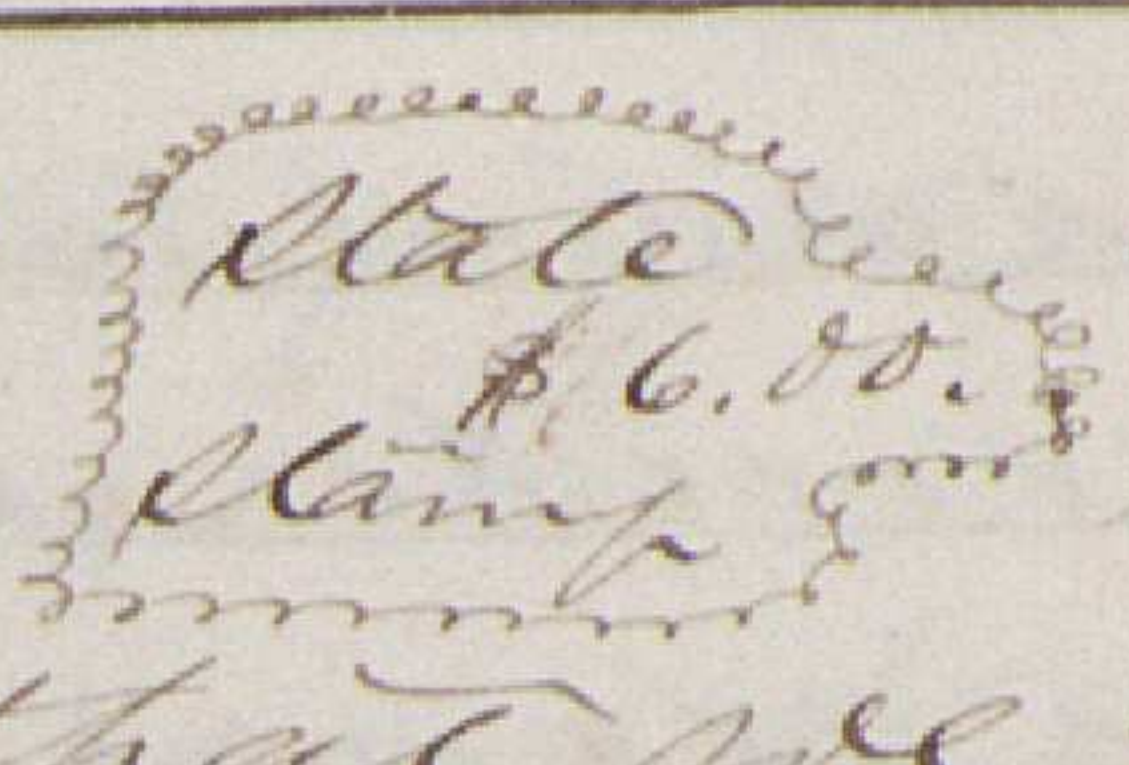 State
$6.00.
Stamp